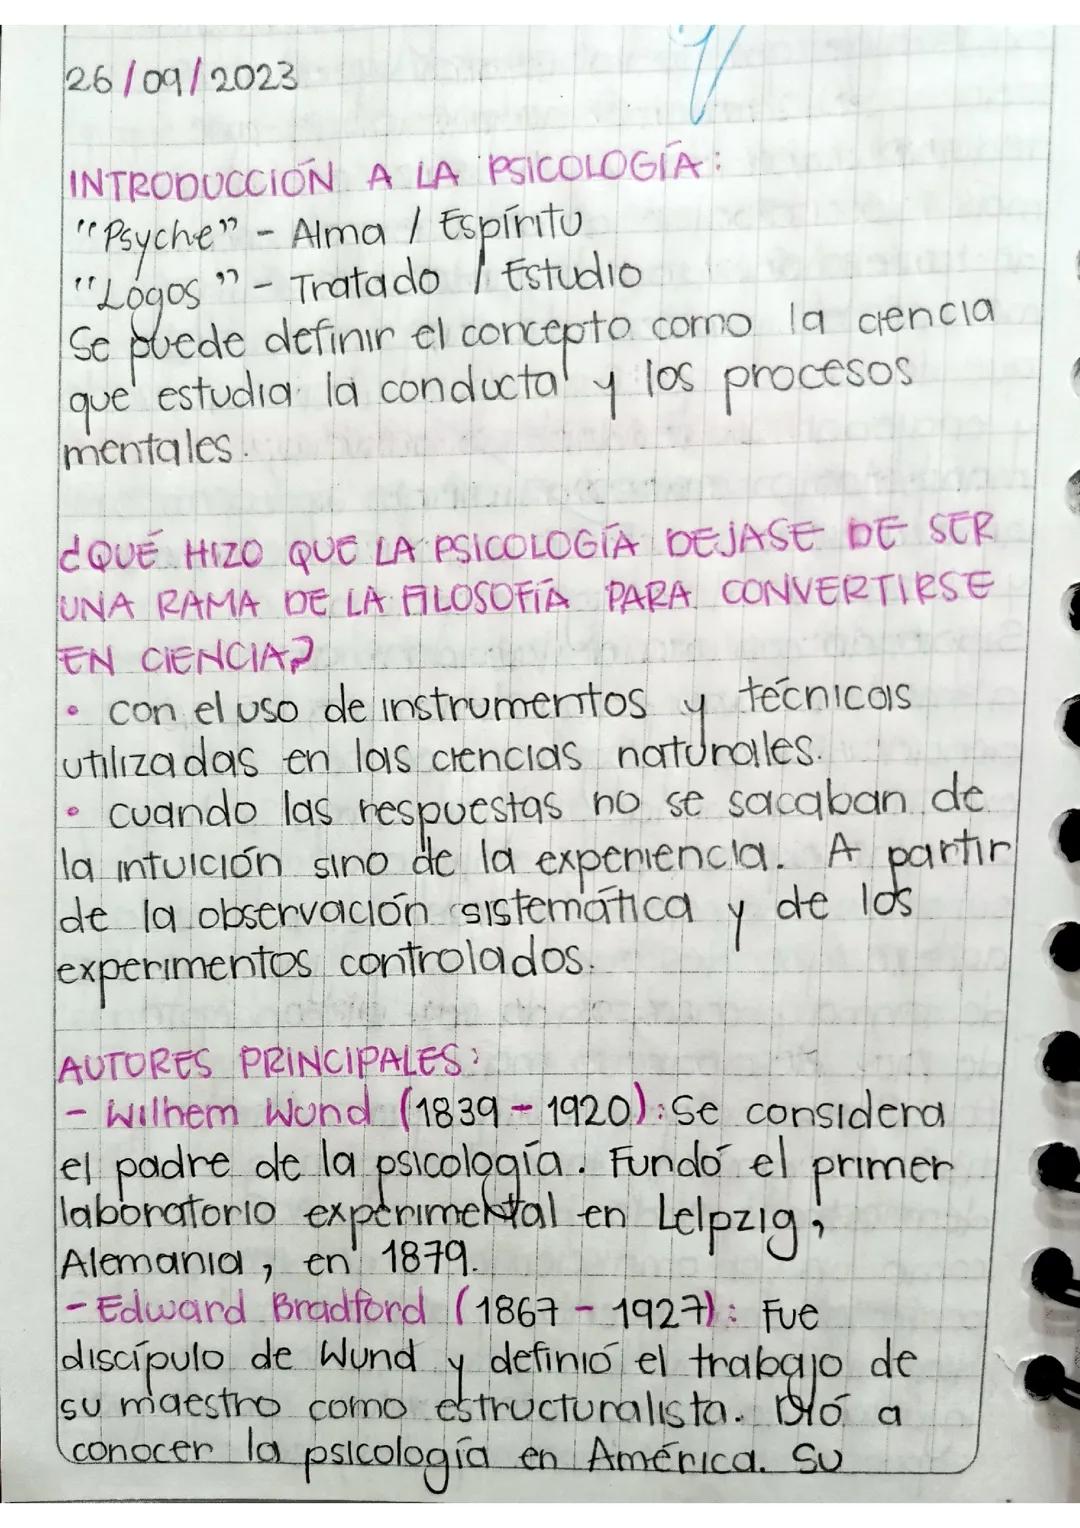 26/09/2023
INTRODUCCIÓN A LA PSICOLOGÍA:
"Psyche" - Alma / Espíritu
"Logos" - Tratado / Estudio
Se puede definir el concepto como la ciencia
que estudia la conducta y los procesos
mentales.
¿QUÉ HIZO QUE LA PSICOLOGÍA DEJASE DE SER
UNA RAMA DE LA FILOSOFÍA PARA CONVERTIRSE
EN CIENCIA?
• con el uso de instrumentos y técnicas
utilizadas en las ciencias naturales.
• cuando las respuestas no se sacaban de
la intuición sino de la experiencia. A partir
de la observación sistemática y de los
experimentos controlados.
AUTORES PRINCIPALES:
- Wilhem Wund (1839 - 1920): Se considera
el padre de la psicología. Fundó el primer
laboratorio experimental en Leipzig,
Alemania, en 1879.
- Edward Bradford (1867 - 1927): Fue
discípulo de Wund y definió el trabajo de
su maestro como estructuralista. Dió a
conocer la psicología en América. Su